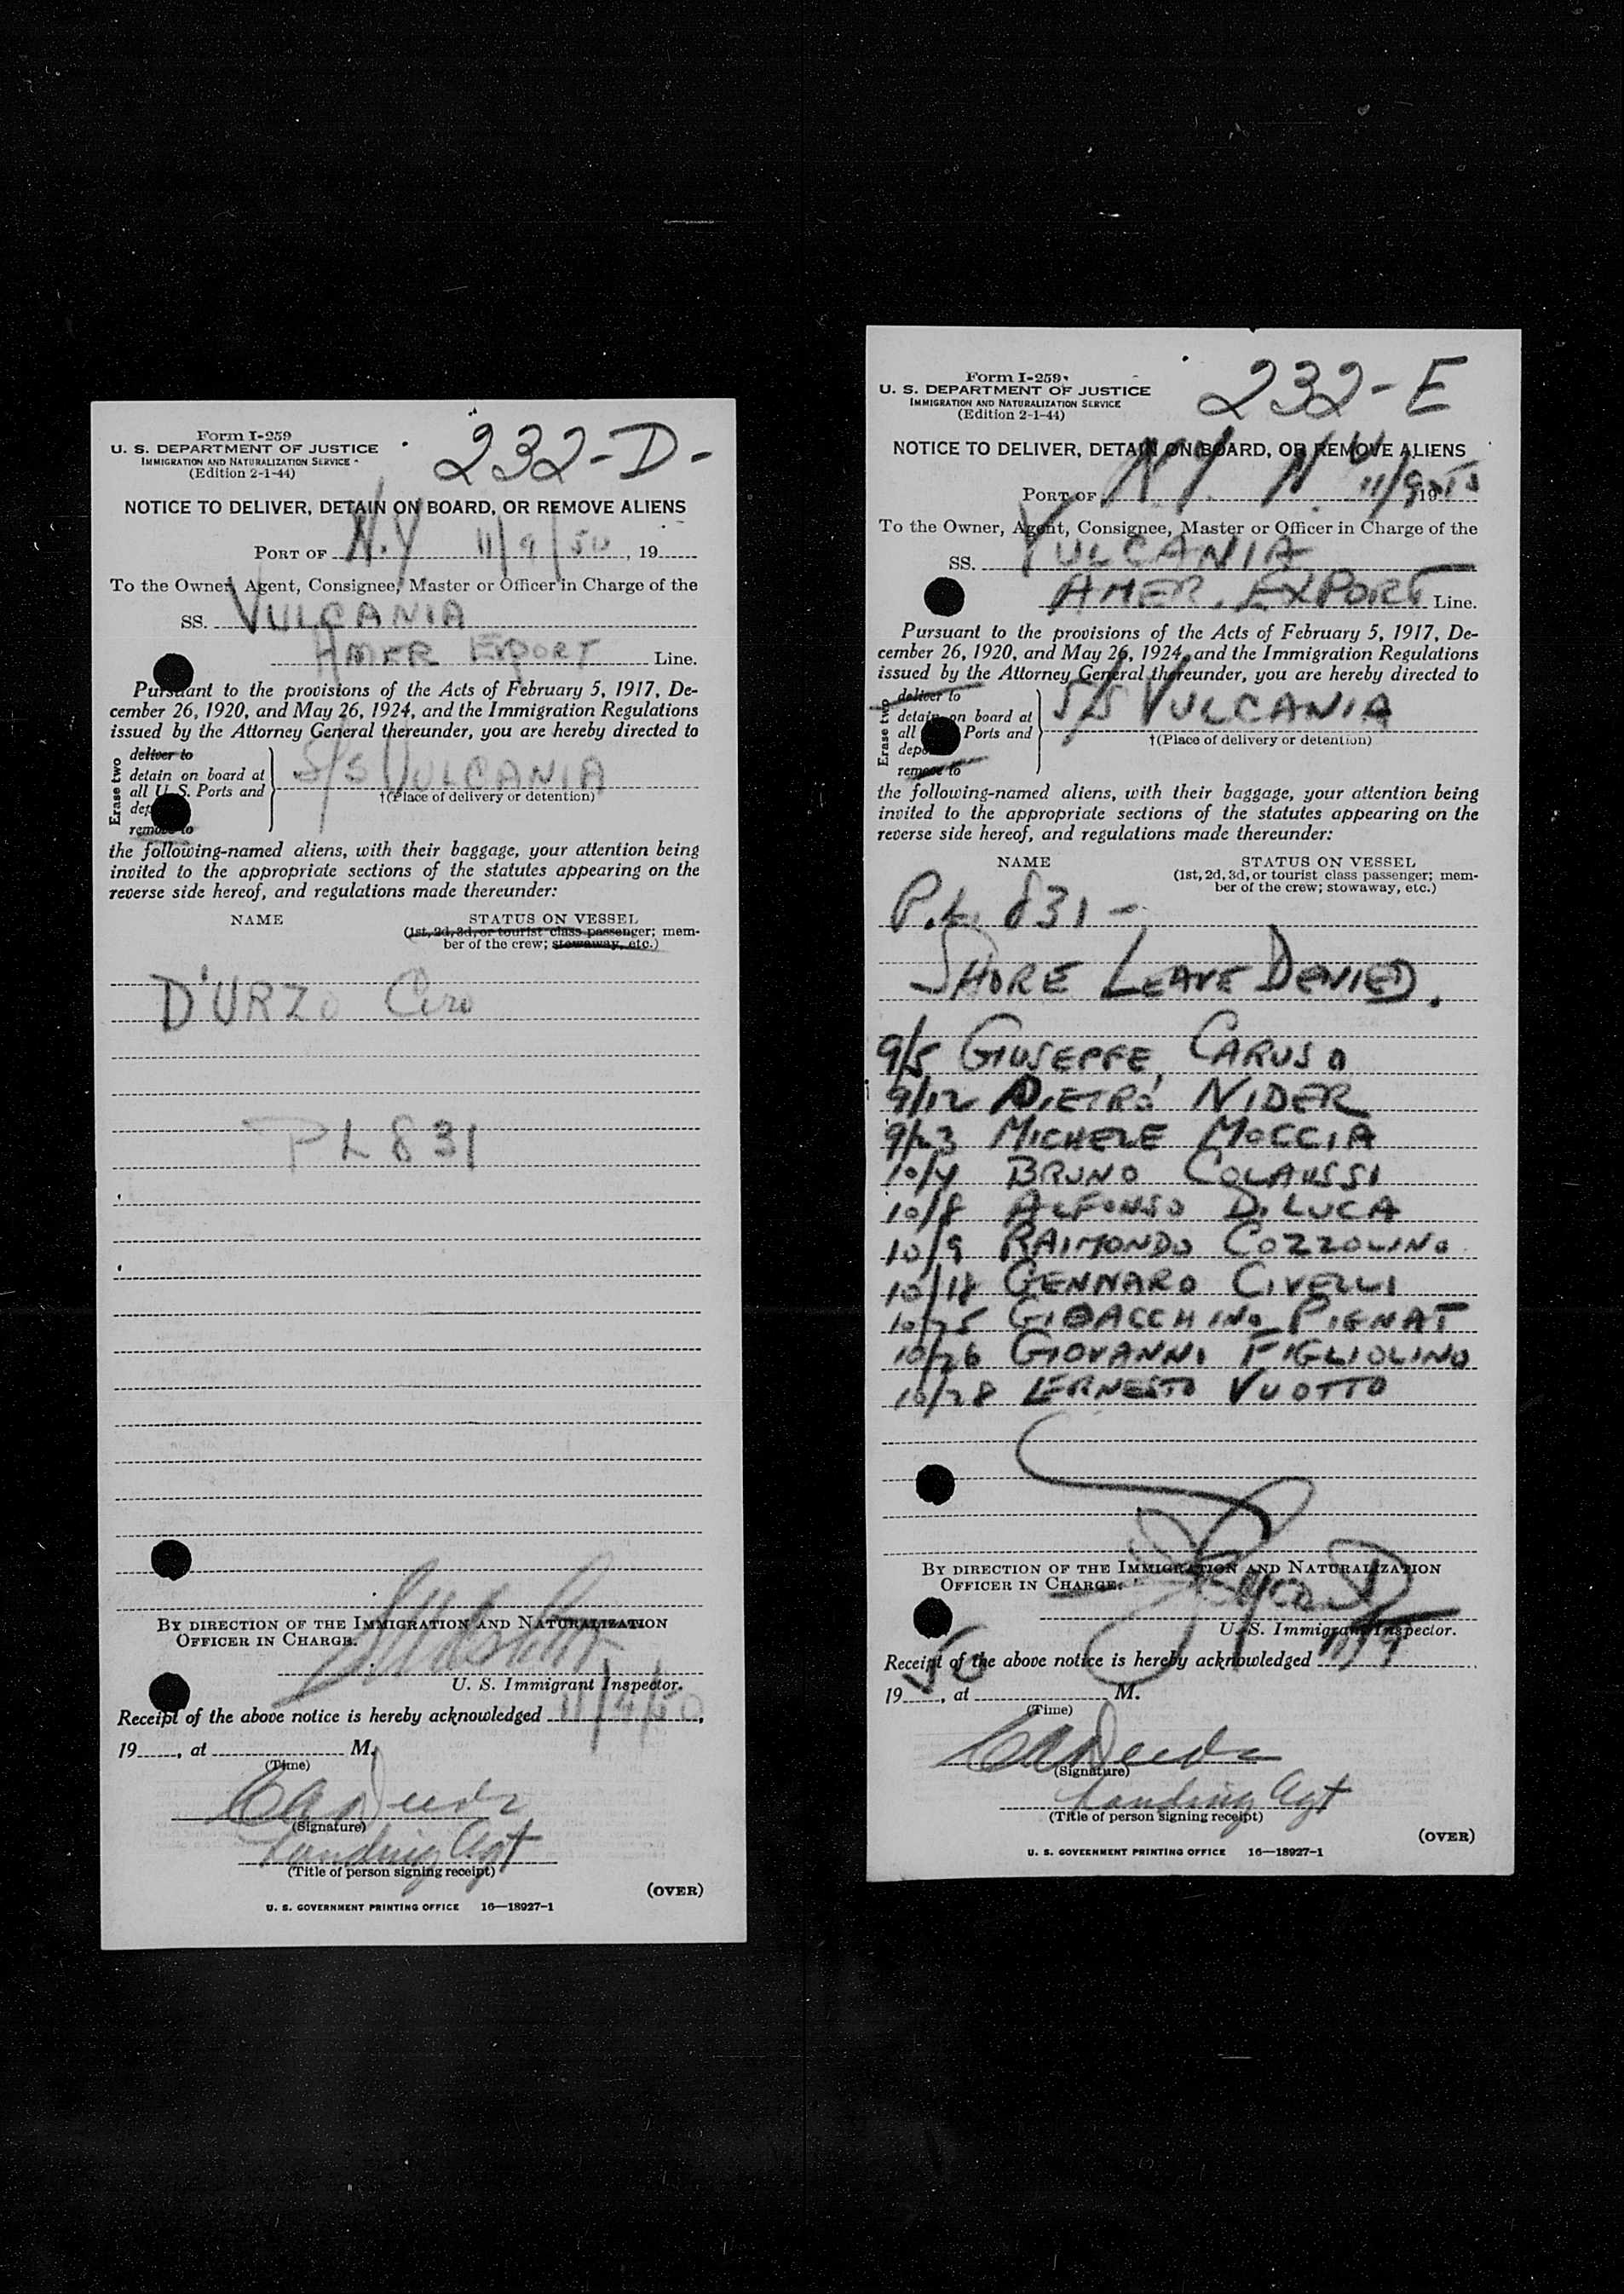 Form I-259
U. S. DEPARTMENT OF JUSTICE
IMMIGRATION AND NATURALIZATION SERVICE
(Edition 2-1-44)
232-D-
NOTICE TO DELIVER, DETAIN ON BOARD, OR REMOVE ALIENS
PORT OF N.Y 11/9/50, 19
To the Owner, Agent, Consignee, Master or Officer in Charge of the
SS. VULCANIA
AMER EXPORT Line.
Pursuant to the provisions of the Acts of February 5, 1917, De-
cember 26, 1920, and May 26, 1924, and the Immigration Regulations
issued by the Attorney General thereunder, you are hereby directed to
Erase two
deliver to
detain on board at
all U. S. Ports and
dep
remove to
S/S VULCANIA
†(Place of delivery or detention)
the following-named aliens, with their baggage, your attention being
invited to the appropriate sections of the statutes appearing on the
reverse side hereof, and regulations made thereunder:
NAME STATUS ON VESSEL
(1st, 2d, 3d, or tourist class passenger; mem-
ber of the crew; stowaway, etc.)
D'URZO Ciro
PL 831
BY DIRECTION OF THE IMMIGRATION AND NATURALIZATION
OFFICER IN CHARGE.
U. S. Immigrant Inspector.
Receipt of the above notice is hereby acknowledged 11/9/50,
19, at M.
(Time)
(Signature)
Landing Agt
(Title of person signing receipt)
(OVER)
U. S. GOVERNMENT PRINTING OFFICE 16—18927-1
Form I-259
U. S. DEPARTMENT OF JUSTICE
IMMIGRATION AND NATURALIZATION SERVICE
(Edition 2-1-44)
232-E
NOTICE TO DELIVER, DETAIN ON BOARD, OR REMOVE ALIENS
PORT OF N.Y. N.Y 11/9 1950
To the Owner, Agent, Consignee, Master or Officer in Charge of the
SS. VULCANIA
AMER. EXPORT Line.
Pursuant to the provisions of the Acts of February 5, 1917, De-
cember 26, 1920, and May 26, 1924, and the Immigration Regulations
issued by the Attorney General thereunder, you are hereby directed to
Erase two
deliver to
detain on board at
all Ports and
dep
remove to
S/S VULCANIA
†(Place of delivery or detention)
the following-named aliens, with their baggage, your attention being
invited to the appropriate sections of the statutes appearing on the
reverse side hereof, and regulations made thereunder:
NAME STATUS ON VESSEL
(1st, 2d, 3d, or tourist class passenger; mem-
ber of the crew; stowaway, etc.)
P.L. 831 -
SHORE LEAVE DENIED.
9/5 GIUSEPPE CARUSO
9/12 PIETRO NIDER
9/23 MICHELE MOCCIA
10/4 BRUNO COLAUSSI
10/8 ALFONSO DI LUCA
10/9 RAIMONDO COZZOLINO
10/18 GENNARO CIVELLI
10/25 GIOACCHINO PIGNAT
10/26 GIOVANNI FIGLIOLINO
10/28 ERNESTO VUOTTO
BY DIRECTION OF THE IMMIGRATION AND NATURALIZATION
OFFICER IN CHARGE.
U. S. Immigrant Inspector.
Receipt of the above notice is hereby acknowledged 11/9
1950, at M.
(Time)
(Signature)
Landing Agt
(Title of person signing receipt)
(OVER)
U. S. GOVERNMENT PRINTING OFFICE 16—18927-1